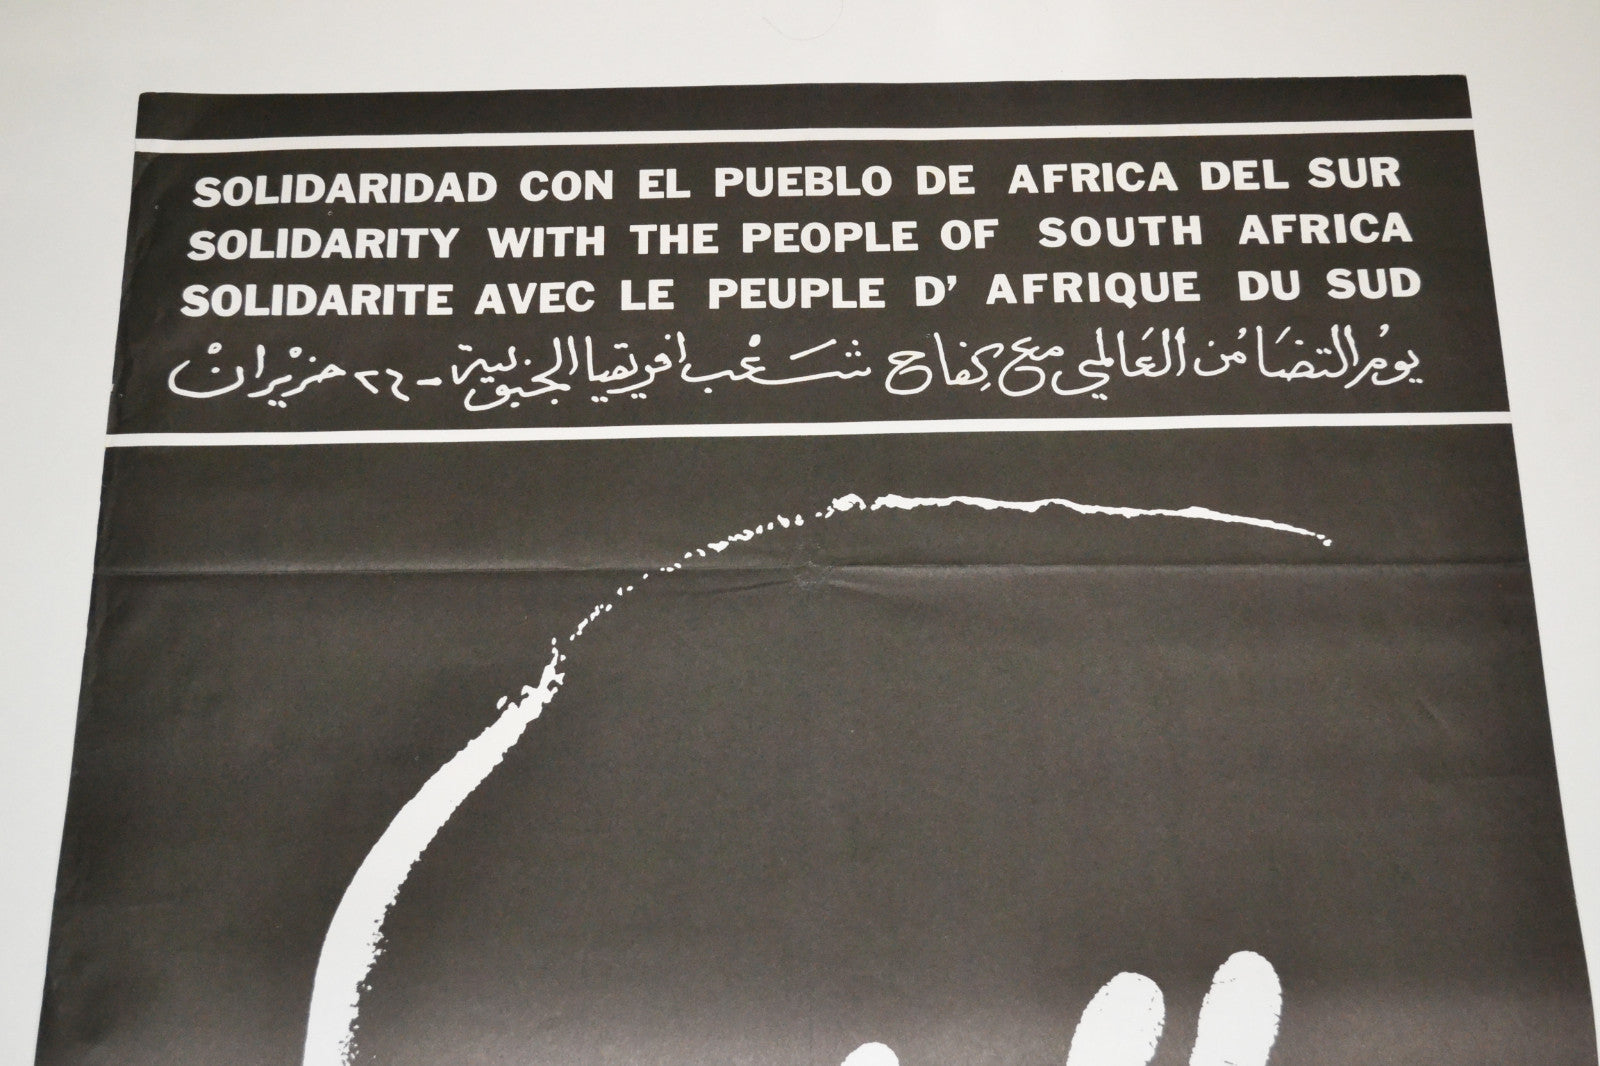 SOLIDARIDAD CON EL PUEBLO DE AFRICA DEL SUR
SOLIDARITY WITH THE PEOPLE OF SOUTH AFRICA
SOLIDARITE AVEC LE PEUPLE D' AFRIQUE DU SUD
يومُ التضَامُن العَالمي مع كِفاح شَعْب افريقيا الجنوبية - ٢٦ حزيْرانْ